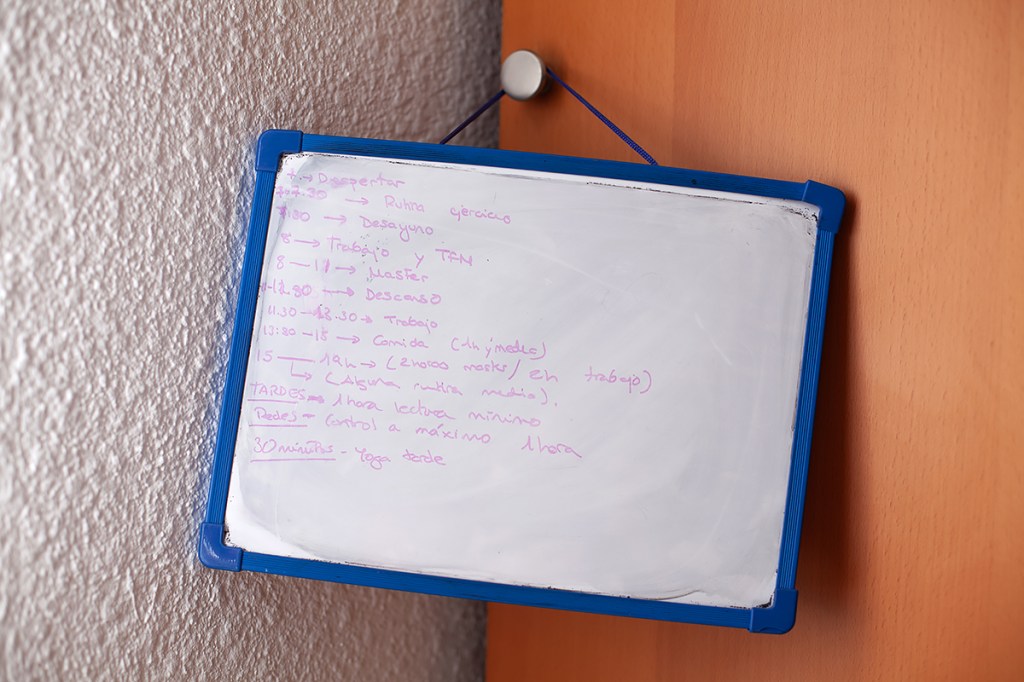 7 → Despertar
7-7.30 → Rutina ejercicio
7:30 → Desayuno
8 → Trabajo y TFM.
8 — 11 → Master
→ Descanso
11.30 – 13.30 → Trabajo
13:30 – 15 → Comida (1h y media)
15 — 19h → (2 horas master / 2h trabajo)
↳ (Alguna rutina media).
TARDES → 1 hora lectura mínimo
Redes – Control a máximo 1 hora
30 minutos – Yoga tarde